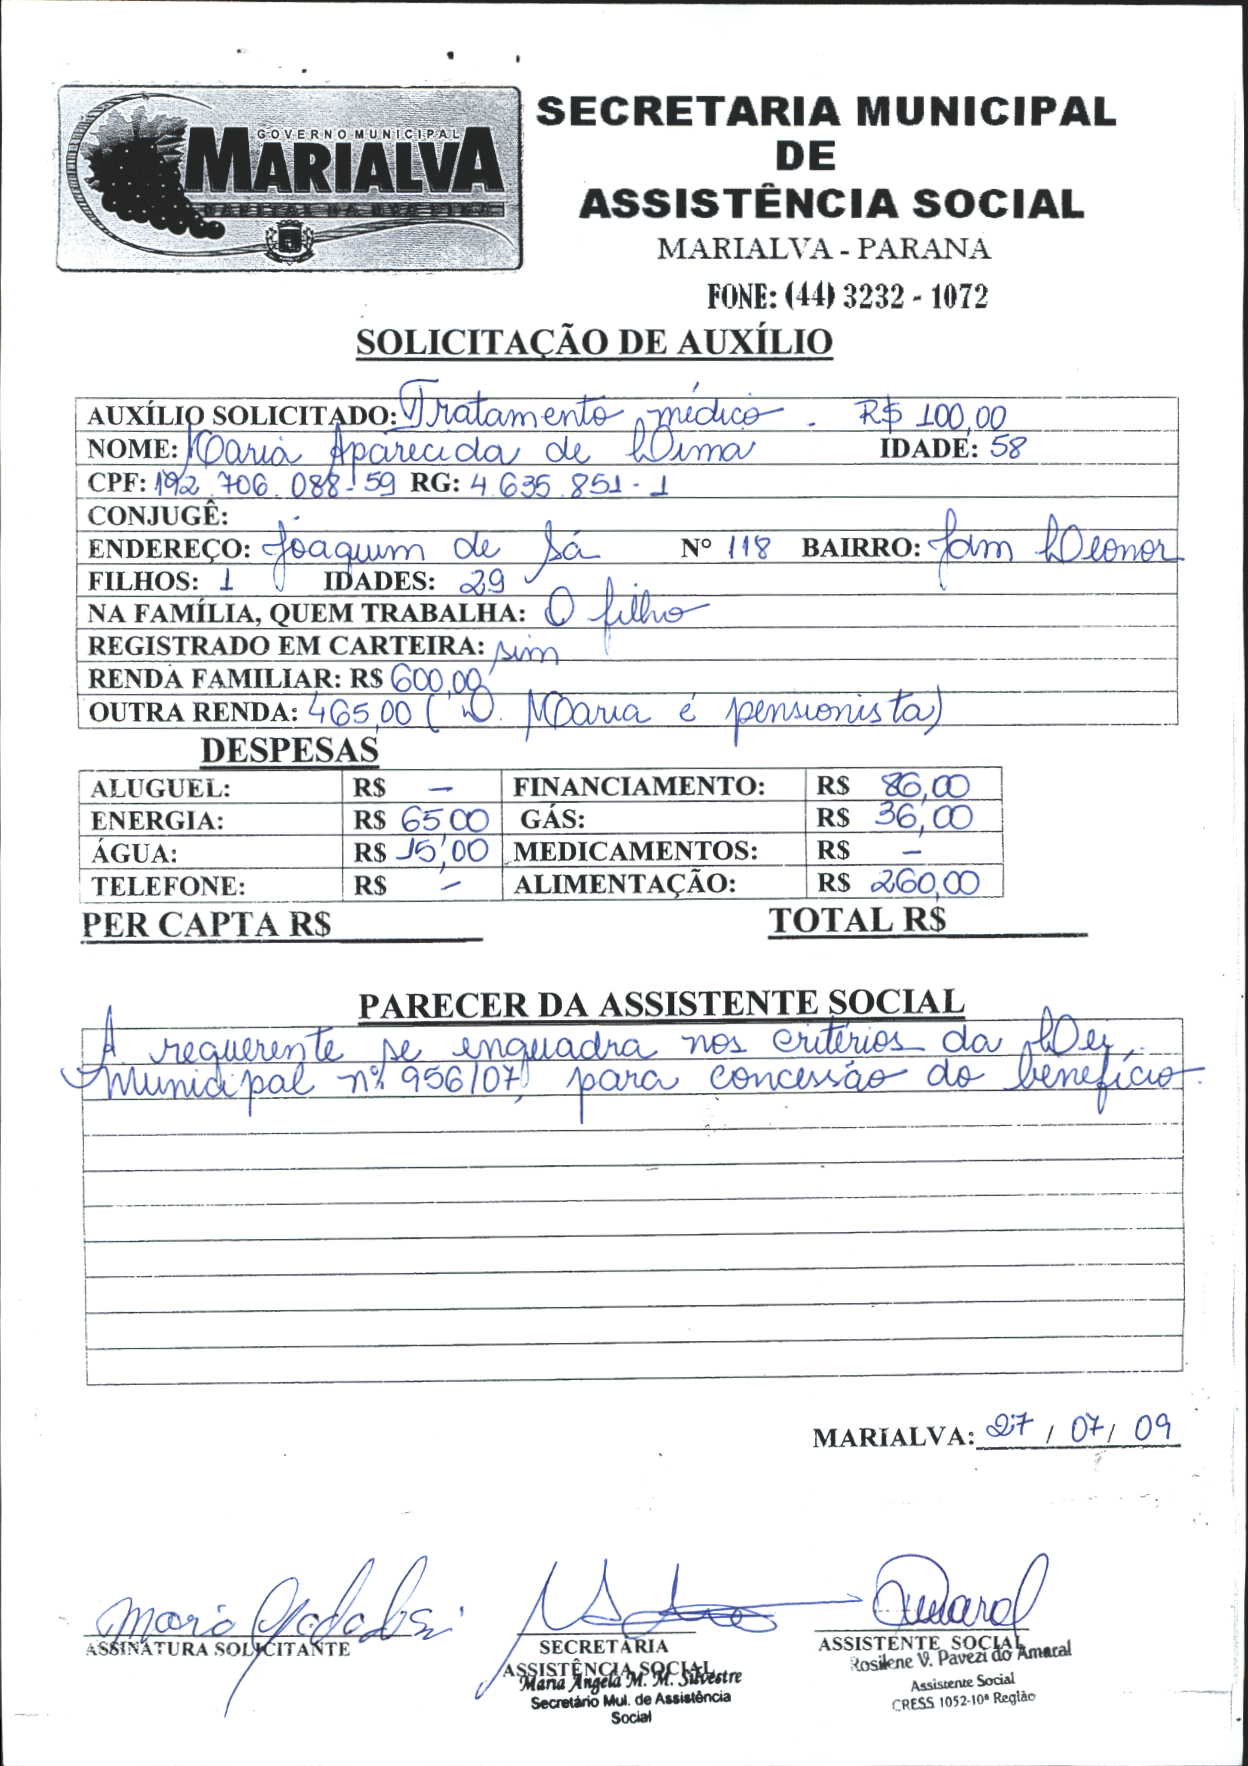 GOVERNO MUNICIPAL
MARIALVA
SECRETARIA MUNICIPAL
DE
ASSISTÊNCIA SOCIAL
MARIALVA - PARANA
FONE: (44) 3232 - 1072
SOLICITAÇÃO DE AUXÍLIO
AUXÍLIO SOLICITADO: Tratamento médico. R$ 100,00
NOME: Maria Aparecida de Lima IDADE: 58
CPF: 192.706.088-59 RG: 4.635.851-1
CONJUGÊ: -
ENDEREÇO: Joaquim de Sá Nº 118 BAIRRO: Jdm Leonor
FILHOS: 1 IDADES: 29
NA FAMÍLIA, QUEM TRABALHA: O filho
REGISTRADO EM CARTEIRA: sim
RENDA FAMILIAR: R$ 600,00
OUTRA RENDA: 465,00 (D. Maria é pensionista)
DESPESAS
ALUGUEL: R$ - FINANCIAMENTO: R$ 86,00
ENERGIA: R$ 65,00 GÁS: R$ 36,00
ÁGUA: R$ 15,00 MEDICAMENTOS: R$ -
TELEFONE: R$ - ALIMENTAÇÃO: R$ 260,00
PER CAPTA R$ TOTAL R$
PARECER DA ASSISTENTE SOCIAL
A requerente se enquadra nos critérios da Lei
Municipal nº 956/07, para concessão do benefício.
MARIALVA: 27 / 07 / 09
Maria
ASSINATURA SOLICITANTE
SECRETÁRIA
ASSISTÊNCIA SOCIAL
Maria Angela M. M. Silvestre
Secretário Mul. de Assistência
Social
ASSISTENTE SOCIAL
Rosilene V. Pavezi do Amaral
Assistente Social
CRESS 1052-10ª Região